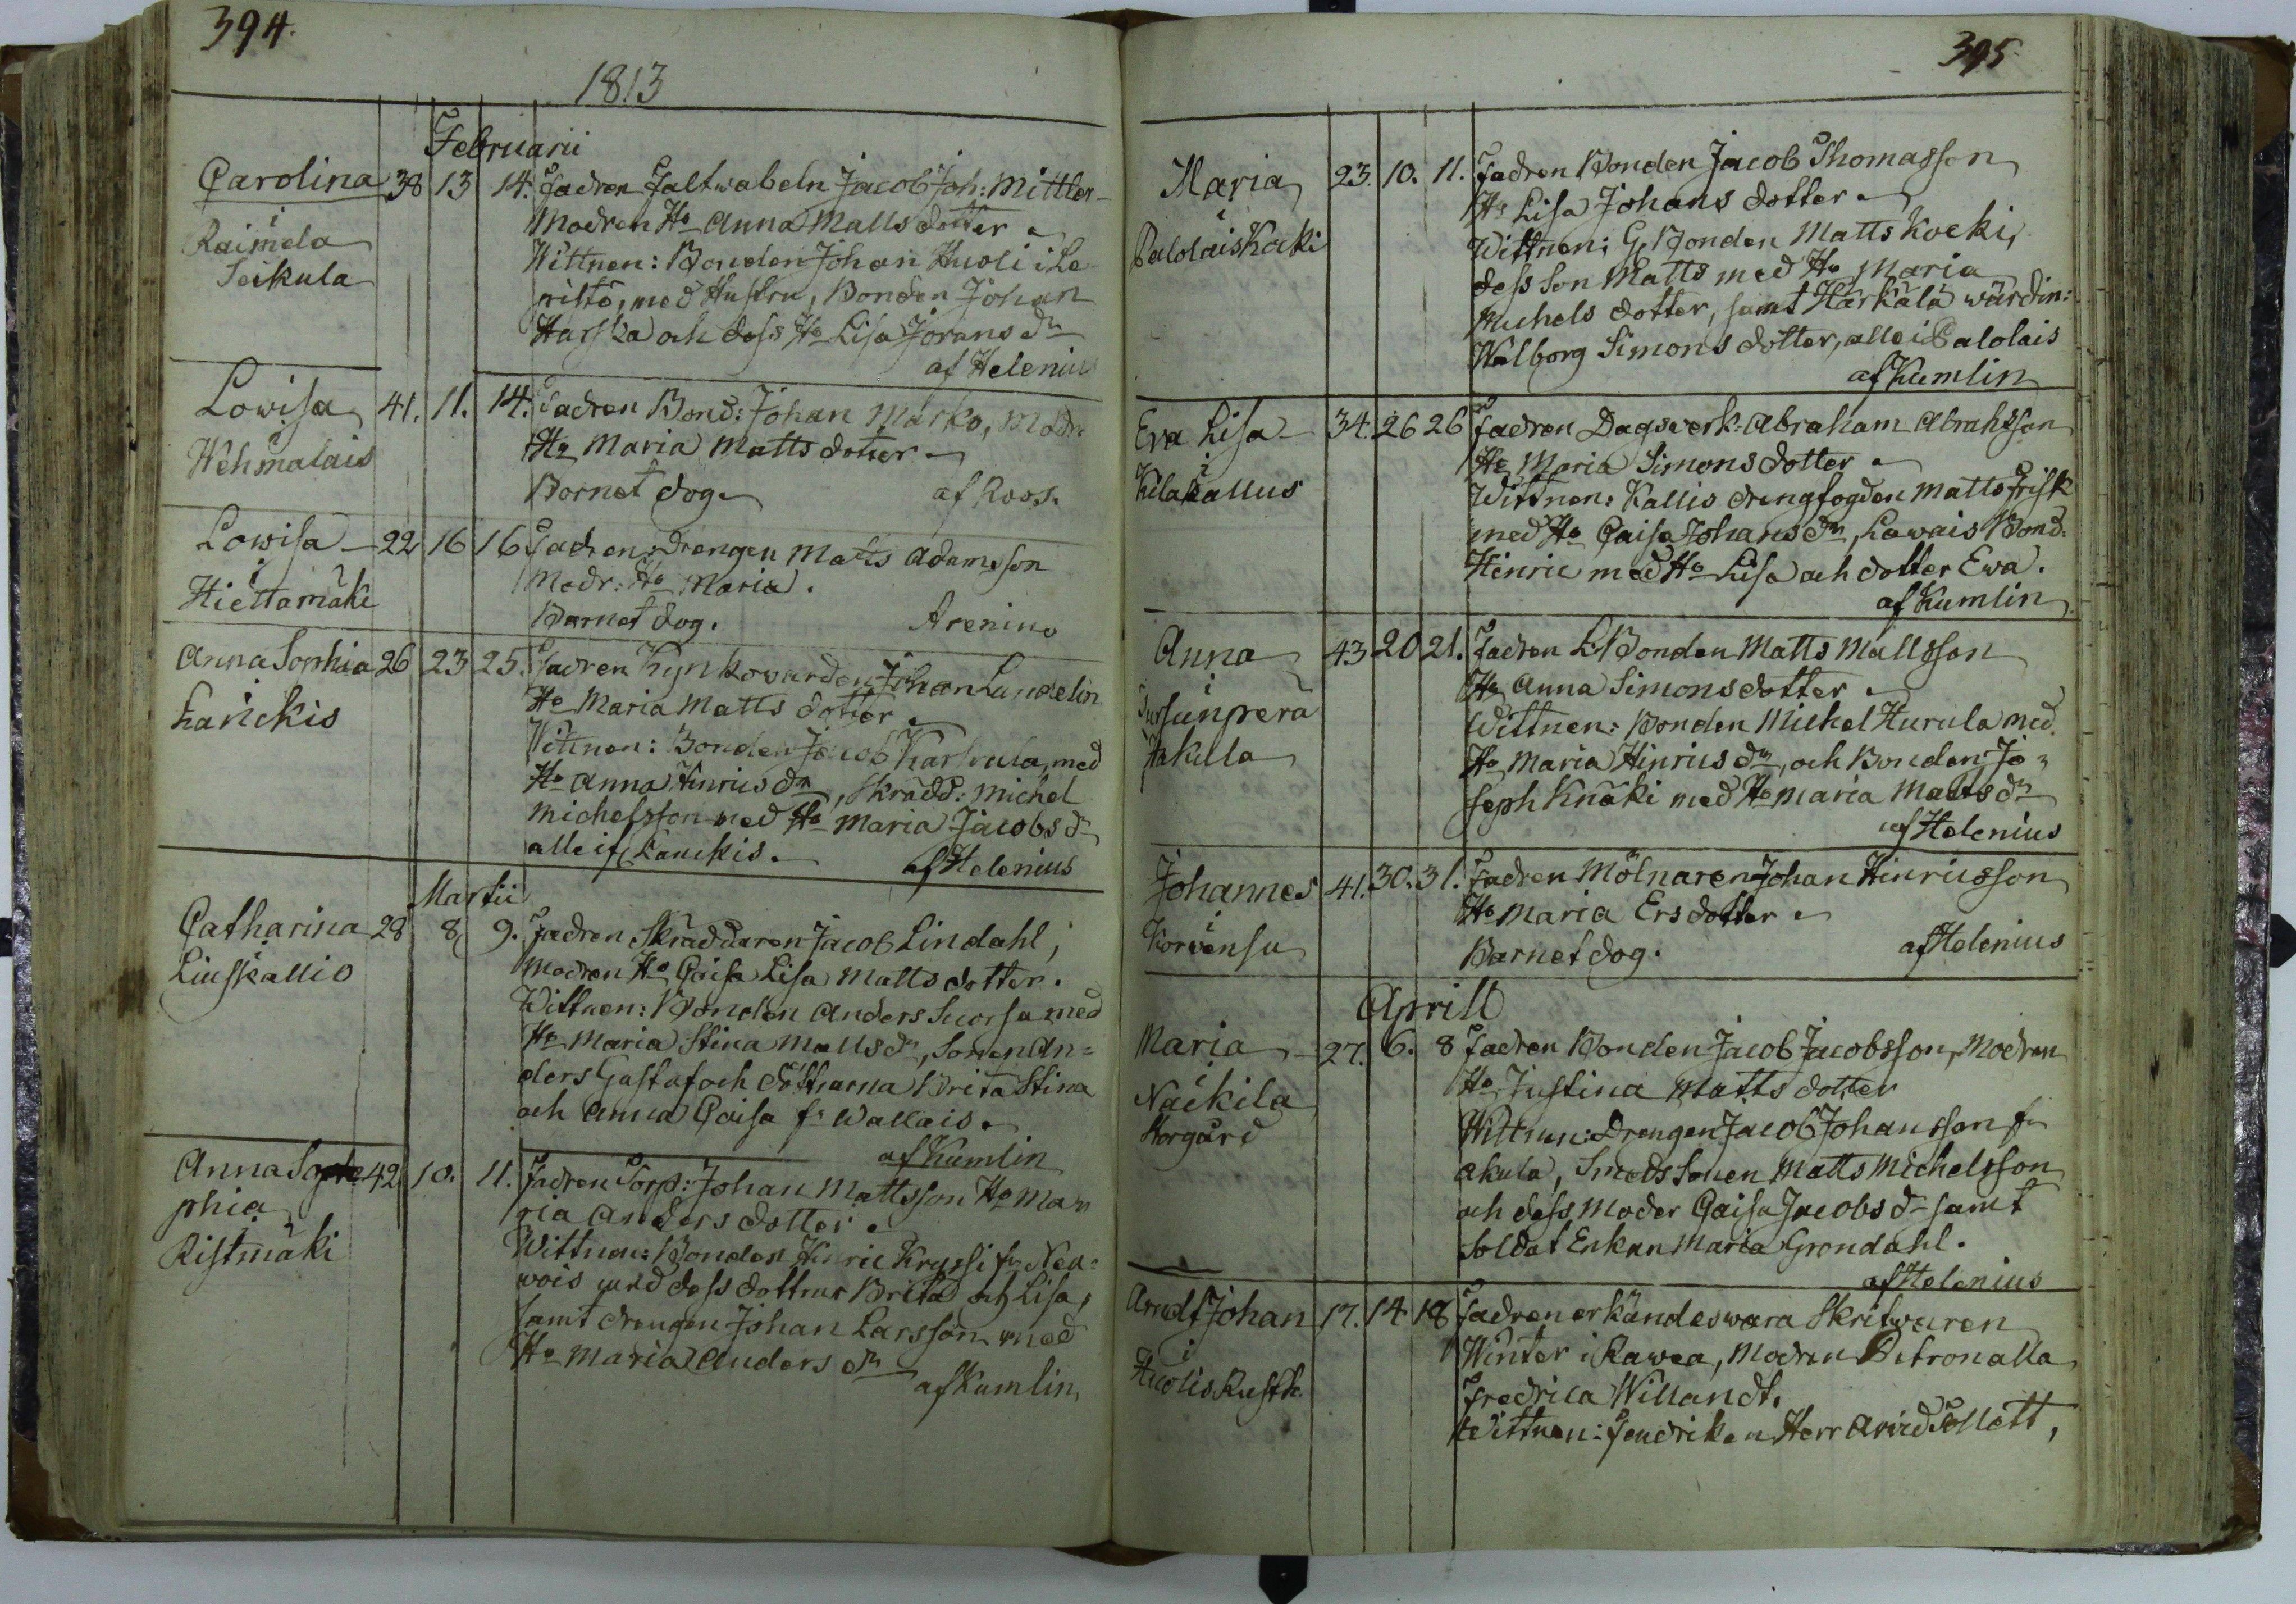 394.
1813
Februarii
Carolina 38 13 14. Fadren Faltwabeln Jacob Joh: Mittler
i
Raimela
Seikula
Modren Ho Anna Matts dotter
Wittnen: Bonden Johan Huoli i Le
pistö, med Hustru, Bonden Johan
Harska och dess Ho Lisa Jörans dr
af Helenius
Lowisa 41. 11. 14. Fadren Bond: Johan Marko, Modr.
i
Wehmalais
Ho Maria Matts dotter
Barnet dog. af Ross.
Lowisa 22 16 16 Fadren: Drengen Matts Adamsson
i
Hiettamäki
Modr: Ho Maria.
Barnet dog. Arenius
Anna Sophia 26 23 25. Fadren Kynkowarden Johan Lundelin
i
Lanckis
Ho Maria Matts dotter
Wittnen: Bonden Jacob Karhula, med
Ho Anna Hinrics dr, Skrädd: Michel
Michelsson med Ho Maria Jacobs dr
alle if. Lanckis. af Helenius
Martii
Catharina 28 8 9. Fadren Skräddaren Jacob Lindahl,
i
Liuskallio
Modren Ho Caisa Lisa Matts dotter.
Wittnen: Bonden Anders Suorsa med
Ho Maria Stina Matts dr, Sonen An=
ders Gustaf och döttrarna Brita Stina
och Anna Caisa fr Wallais.
af Kumlin
Anna So 42 10. 11. Fadren Torp: Johan Mattsson Ho Ma
phia
i
Ristmäki
ria Anders dotter
Wittnen: Bonden Hinric Kryssi fr Nea=
wois med dess dottrar Brita och Lisa,
samt drengen Johan Larsson med
Ho Maria Anders dr
af Kumlin,
395
Maria 23. 10. 11. Fadren Bonden Jacob Thomasson
i
Palolais Kaki
Ho Lisa Johans dotter
Wittnen: G. Bonden Matts Kocki,
dess Son Matts med Ho Maria
Michels dotter, samt Härkälä wärdin:
Walborg Simons dotter, alle i Palolais
af Kumlin
Eva Lisa 34. 26 26 Fadren Dagsverk. Abraham Abrahsson
i
Kilakallus
Ho Maria Simons dotter
Wittnen: Kallis drengfogden Matts Frisk
med Ho Caisa Johans dr, Lawais Bond:
Hinric med Ho Lisa och dotter Ewa.
af Kumlin
Anna 43 20 21. Fadren L. Bonden Matts Mattsson
i
Hakilla
Ho Anna Simonsdotter
Wittnen: Bonden Michel Hurula med
Ho Maria Hinrics dr, och Bonden Jo=
seph Knäki med Ho Maria Matts dr
af Helenius
Johannes 41. 30. 31. Fadren Mölnaren Johan Hinricsson
i
Korvensu
Ho Maria Ers dotter
Barnet dog. af Helenius
Aprill
Maria 27. 6. 8 Fadren Bonden Jacob Jacobsson, Modren
i
Näckilä
Storgård
Ho Justina Matts dotter
Wittnen: Drengen Jacob Johansson fr
Akula, Smeds Sonen Matts Michelsson
och dess Moder Caisa Jacobs dr samt
Soldat Enkan Maria Grondahl.
af Helenius
Arndt Johan 17. 14 18 Fadren erkändes wara Skrifwaren
i
Huolis Rusth.
Winter i Rawea, Modren Petronalla
Fredrica Willandt.
Wittnen: Fendriken Herr Arvid Sollett,